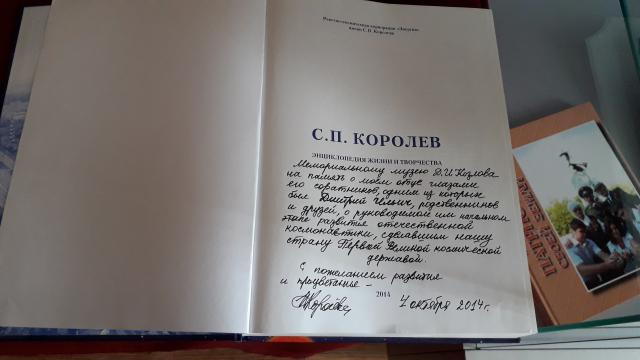 Ракетно-космическая корпорация «Энергия»
имени С.П. Королева
С.П. КОРОЛЕВ
ЭНЦИКЛОПЕДИЯ ЖИЗНИ И ТВОРЧЕСТВА
Мемориальному музею Д.И. Козлова
на память о моем отце глазами
его соратников, одним из которых
был Дмитрий Ильич, родственников
и друзей, о руководимом им начальном
этапе развития отечественной
космонавтики, сделавшим нашу
страну Первой Великой космической
державой.
С пожеланием развития
и процветания –
2014
4 октября 2014г.
ПАТРИОТЫ
СВОЕЙ